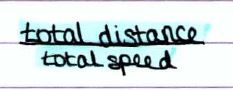 total distance
total speed